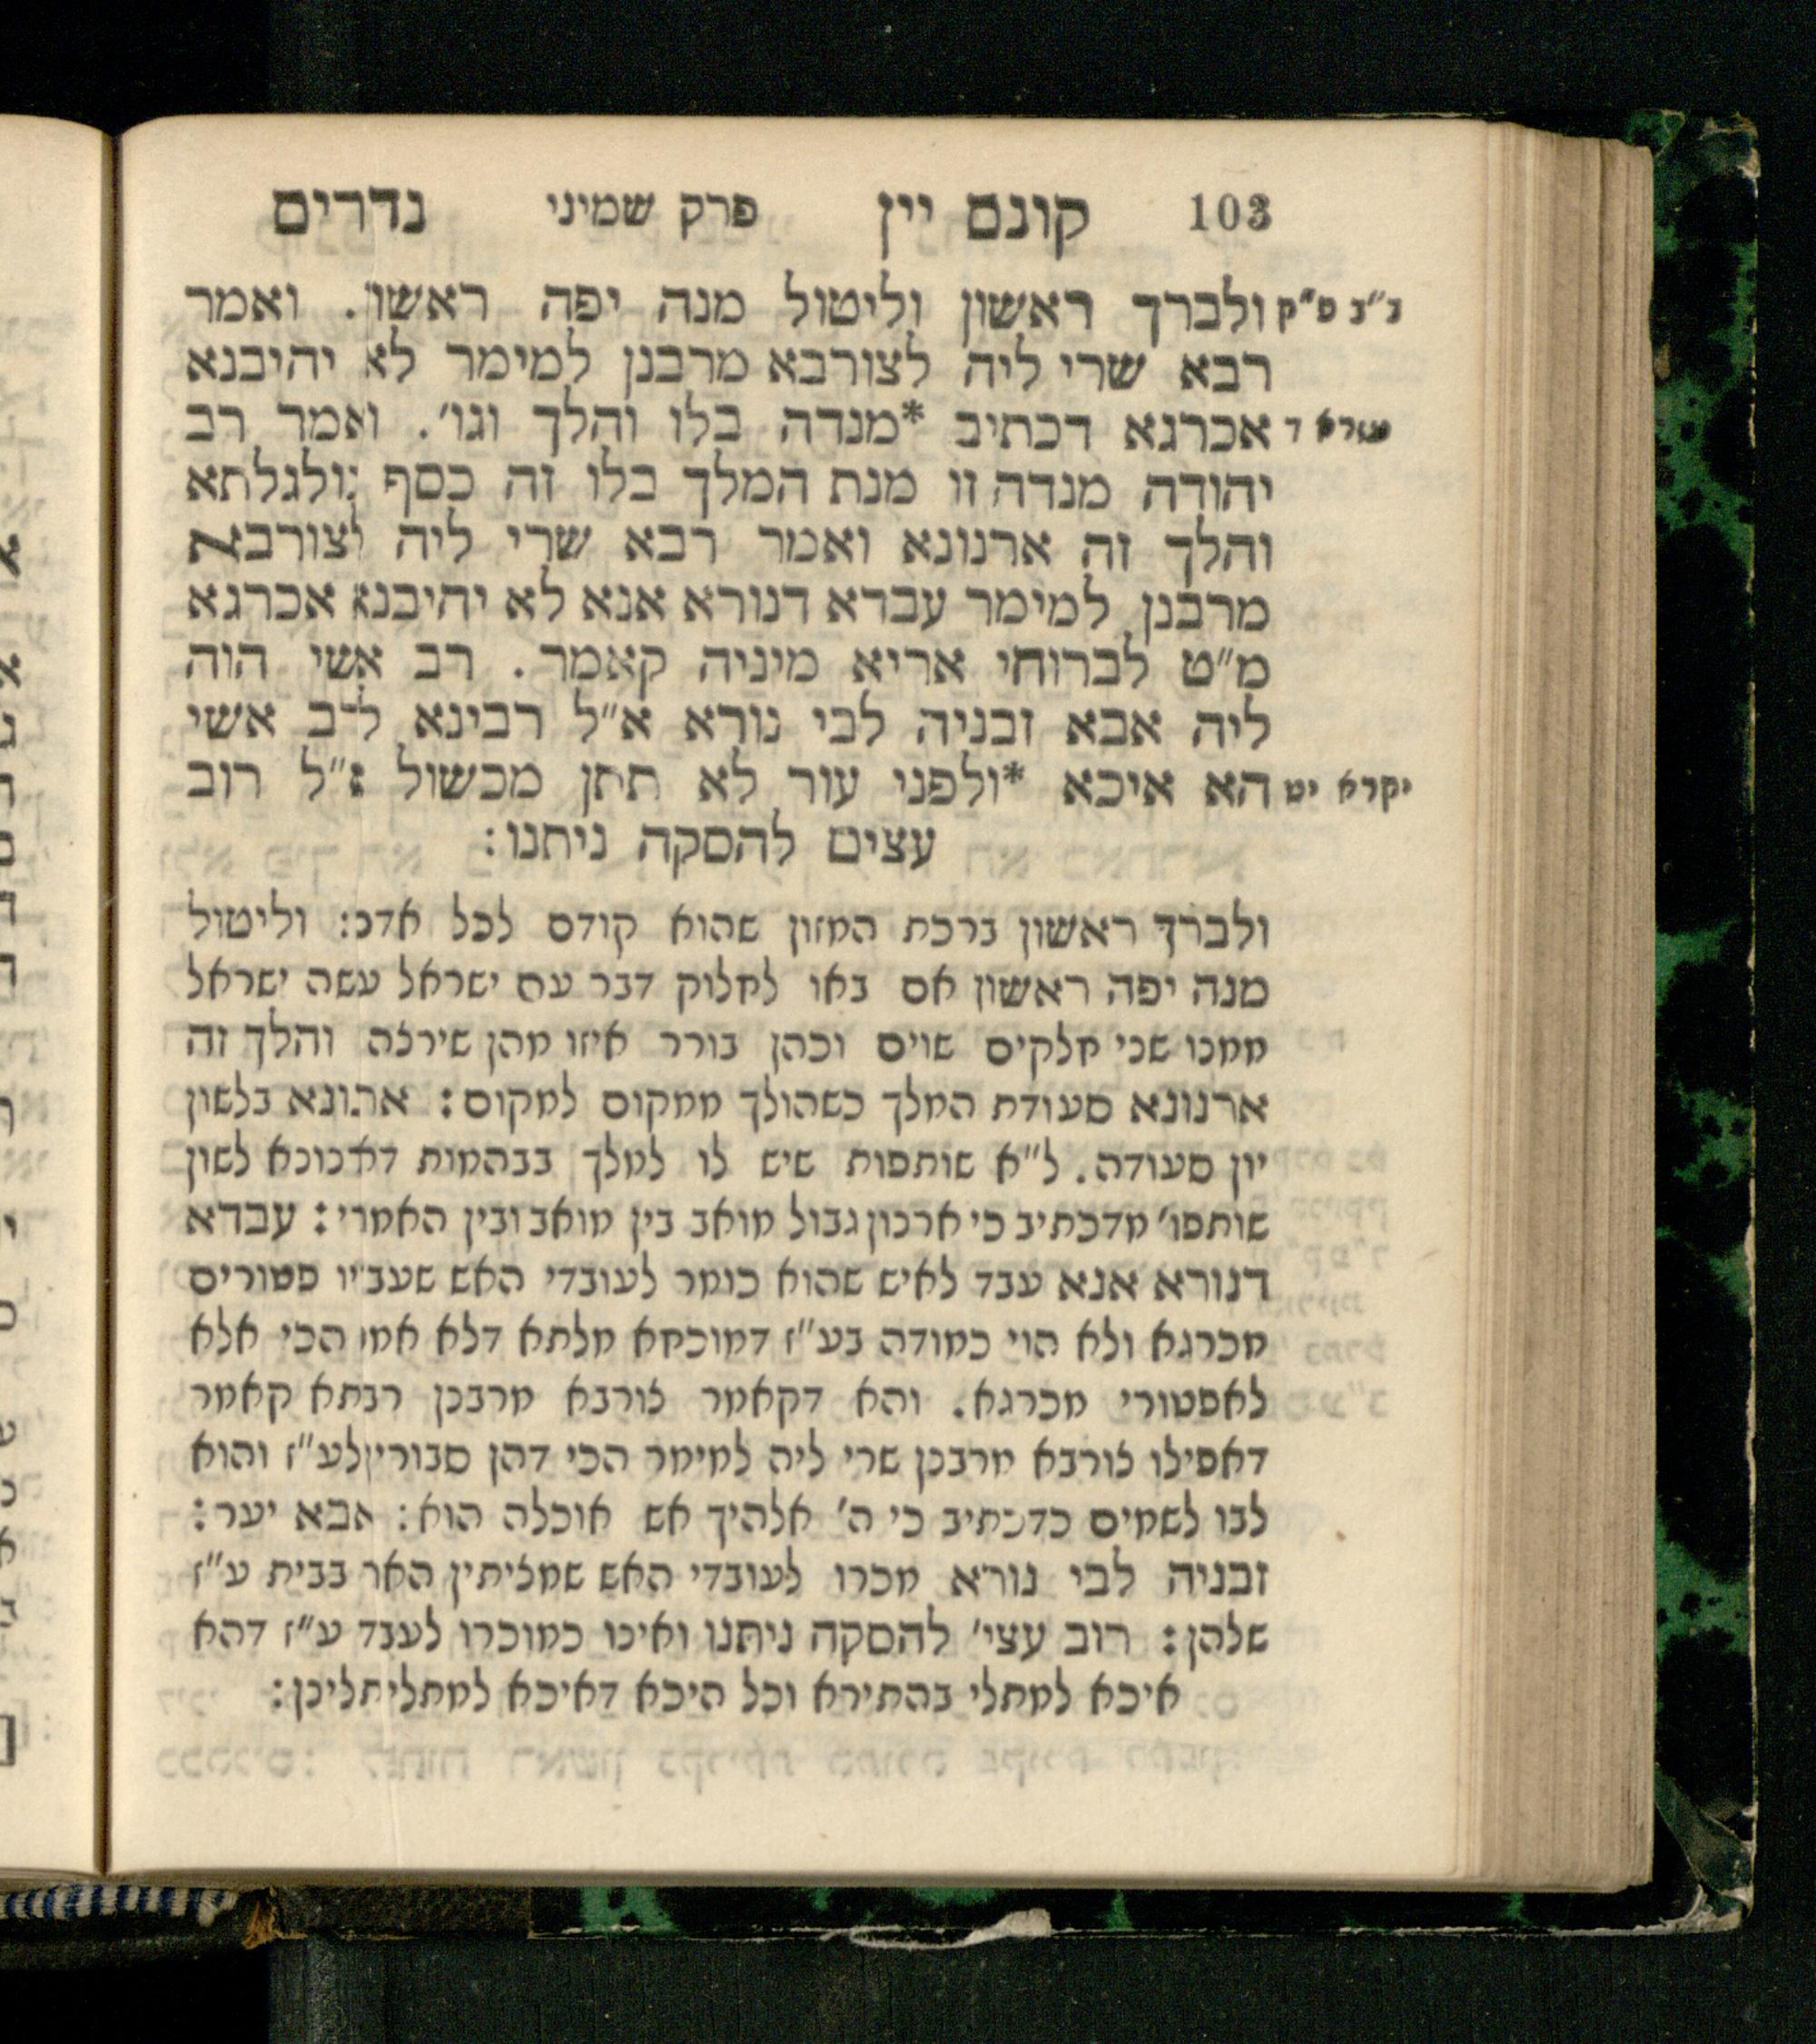 103 קונם יין פרק שמיני נדרים
ולברך ראשון וליטול מנה יפה ראשון. ואמר
רבא שרי ליה לצורבא מרבנן למימר לא יהיבנא
עזרא ד אכרגא דכתיב *מנדה בלו והלך וגו'. ואמר רב
יהודה מנדה זו מנת המלך בלו זה כסף גולגלתא
והלך זה ארנונא ואמר רבא שרי ליה לצורבא
מרבנן למימר עבדא דנורא אנא לא יהיבנא אכרגא
מ"ט לברוחי אריא מיניה קאמר. רב אשי הוה
ליה אבא זבניה לבי נורא א"ל רבינא לרב אשי
ויקרא יט הא איכא *ולפני עור לא תתן מכשול א"ל רוב
עצים להסקה ניתנו:
ולברך ראשון ברכת המזון שהוא קודם לכל אדם: וליטול
מנה יפה ראשון אם באו לחלוק דבר עם ישראל עשה ישראל
ממנו שני חלקים שוים וכהן בורר איזו מהן שירצה והלך זה
ארנונא סעודת המלך כשהולך ממקום למקום: ארנונא בלשון
יון סעודה. ל"א שותפות שיש לו למלך בבהמות דארנונא לשון
שותפו' מדכתיב כי ארנון גבול מואב בין מואב ובין האמרי: עבדא
דנורא אנא עבד לאיש שהוא כומר לעובדי האש שעבדיו פטורים
מכרגא ולא הוי כמודה בע"ז דמוכחא מלתא דלא אמר הכי אלא
לאפטורי מכרגא. והא דקאמר צורבא מרבנן רבתא קאמר
דאפילו צורבא מרבנן שרי ליה למימר הכי דהן סבורין לע"ז והוא
לבו לשמים כדכתיב כי ה' אלהיך אש אוכלה הוא: אבא יער:
זבניה לבי נורא מכרו לעובדי האש שמציתין האר בבית ע"ז
שלהן: רוב עצי' להסקה ניתנו ואינו כמוכרו לעבד ע"ז דהא
איכא למתלי בהתירא וכל היכא דאיכא למתלי תלינן: